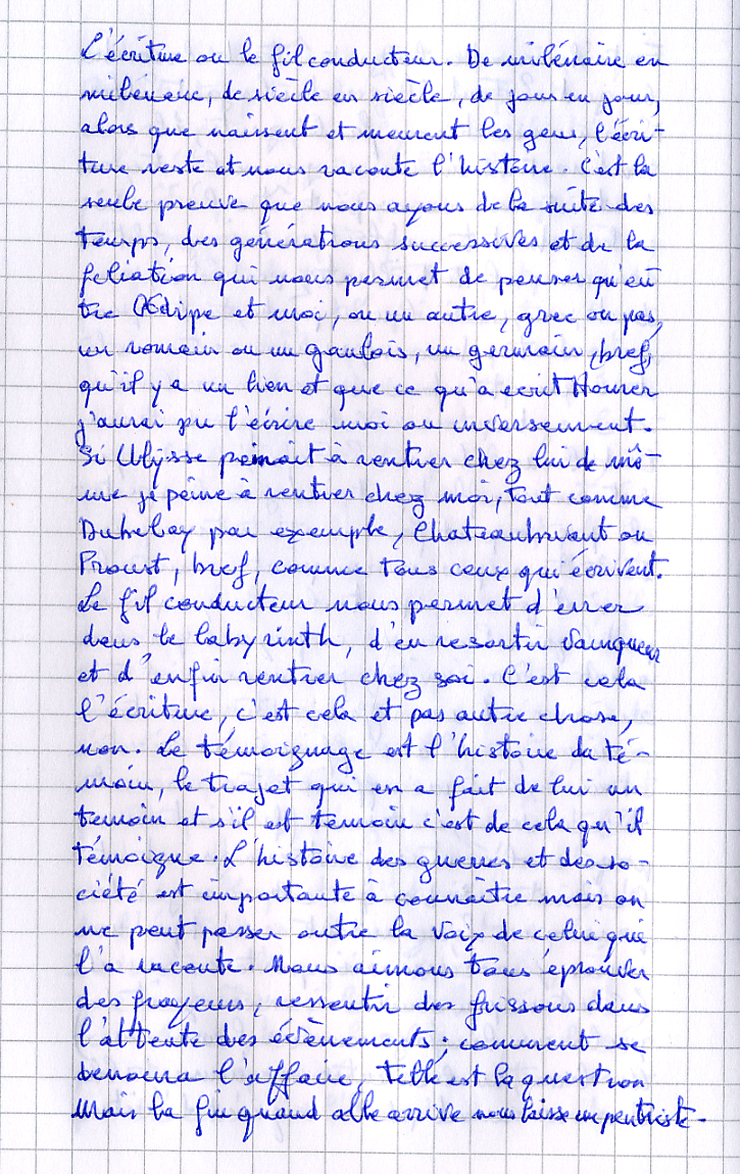 L'écriture ou le fil conducteur. De milénaire en
milénaire, de siècle en siècle, de jour en jour,
alors que naissent et meurent les gens, l'écri-
ture reste et nous raconte l'histoire. C'est la
seule preuve que nous ayons de la suite des
temps, des générations successives et de la
filiation qui nous permet de penser qu'en
tre Œdipe et moi, ou un autre, grec ou pas,
un romain ou un gaulois, un germain, bref,
qu'il y a un lien et que ce qu'a écrit Homer
j'aurai pu l'écrire moi ou inversement.
Si Ulysse peinait à rentrer chez lui de mê-
me je peine à rentrer chez moi, tout comme
Dubelay par exemple, Chateaubriant ou
Proust, bref, comme tous ceux qui écrivent.
Le fil conducteur nous permet d'errer
dans le labyrinth, d'en resortir vainqueur
et d'enfin rentrer chez soi. C'est cela
l'écriture, c'est cela et pas autre chose,
non. Le témoignage est l'histoire du té-
moin, le trajet qui en a fait de lui un
temoin et s'il est temoin c'est de cela qu'il
témoigne. L'histoire des guerres et des so-
ciété est importante à connaître mais on
ne peut passer outre la voix de celui qui
l'a raconte. Nous aimons tous éprouver
des frayeurs, ressentir des frissons dans
l'attente des évènements ; comment se
denoura l'affaire, telle est la question
Mais la fin quand elle arrive nous laisse un peu triste.